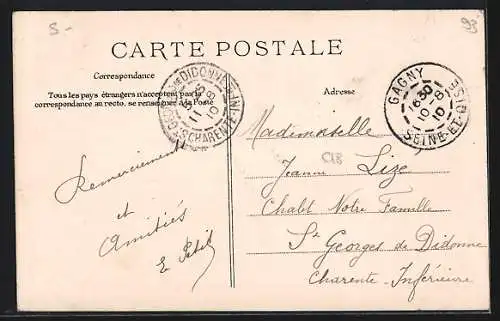 S-
93
CARTE POSTALE
Correspondance
Tous les pays étrangers n'acceptent pas la
correspondance au recto, se renseigner à la Poste
Adresse
GAGNY
16 30
10 - 8
10
SEINE-ET-OISE
DIDONNE
11 8
10
CHARENTE
Mademoiselle
Jeanne Lizé
Chalet Notre Famille
St Georges de Didonne
Charente-Inférieure
Remerciements
et
Amitiés
E Petit